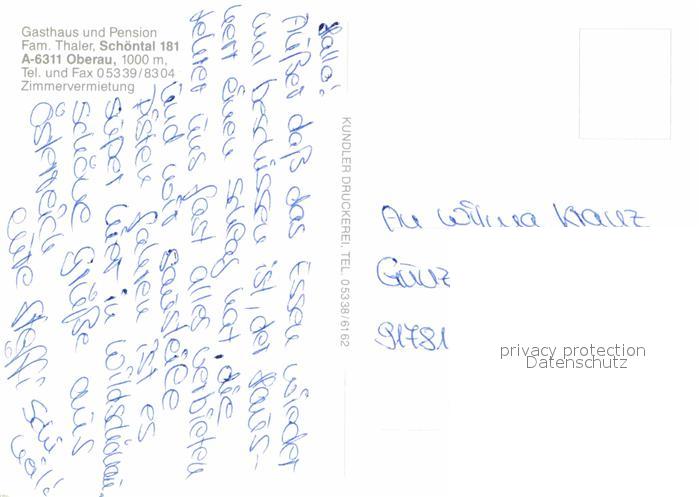 Gasthaus und Pension
Fam. Thaler, Schöntal 181
A-6311 Oberau, 1000 m,
Tel. und Fax 05339/8304
Zimmervermietung
Hallo!
Außer daß das Essen wieder
mal beschissen ist, der Haus-
wert einen Schlag hat die
Lehrer uns fast alles verbieten
und wir sausteile
Pisten fahren ist es
super hier in
schöne Grüße aus
Österreich
eure Steffi
KUNDLER DRUCKEREI, TEL. 05338/6162
An Wilma Kranz
Günz
91781
privacy protection
Datenschutz